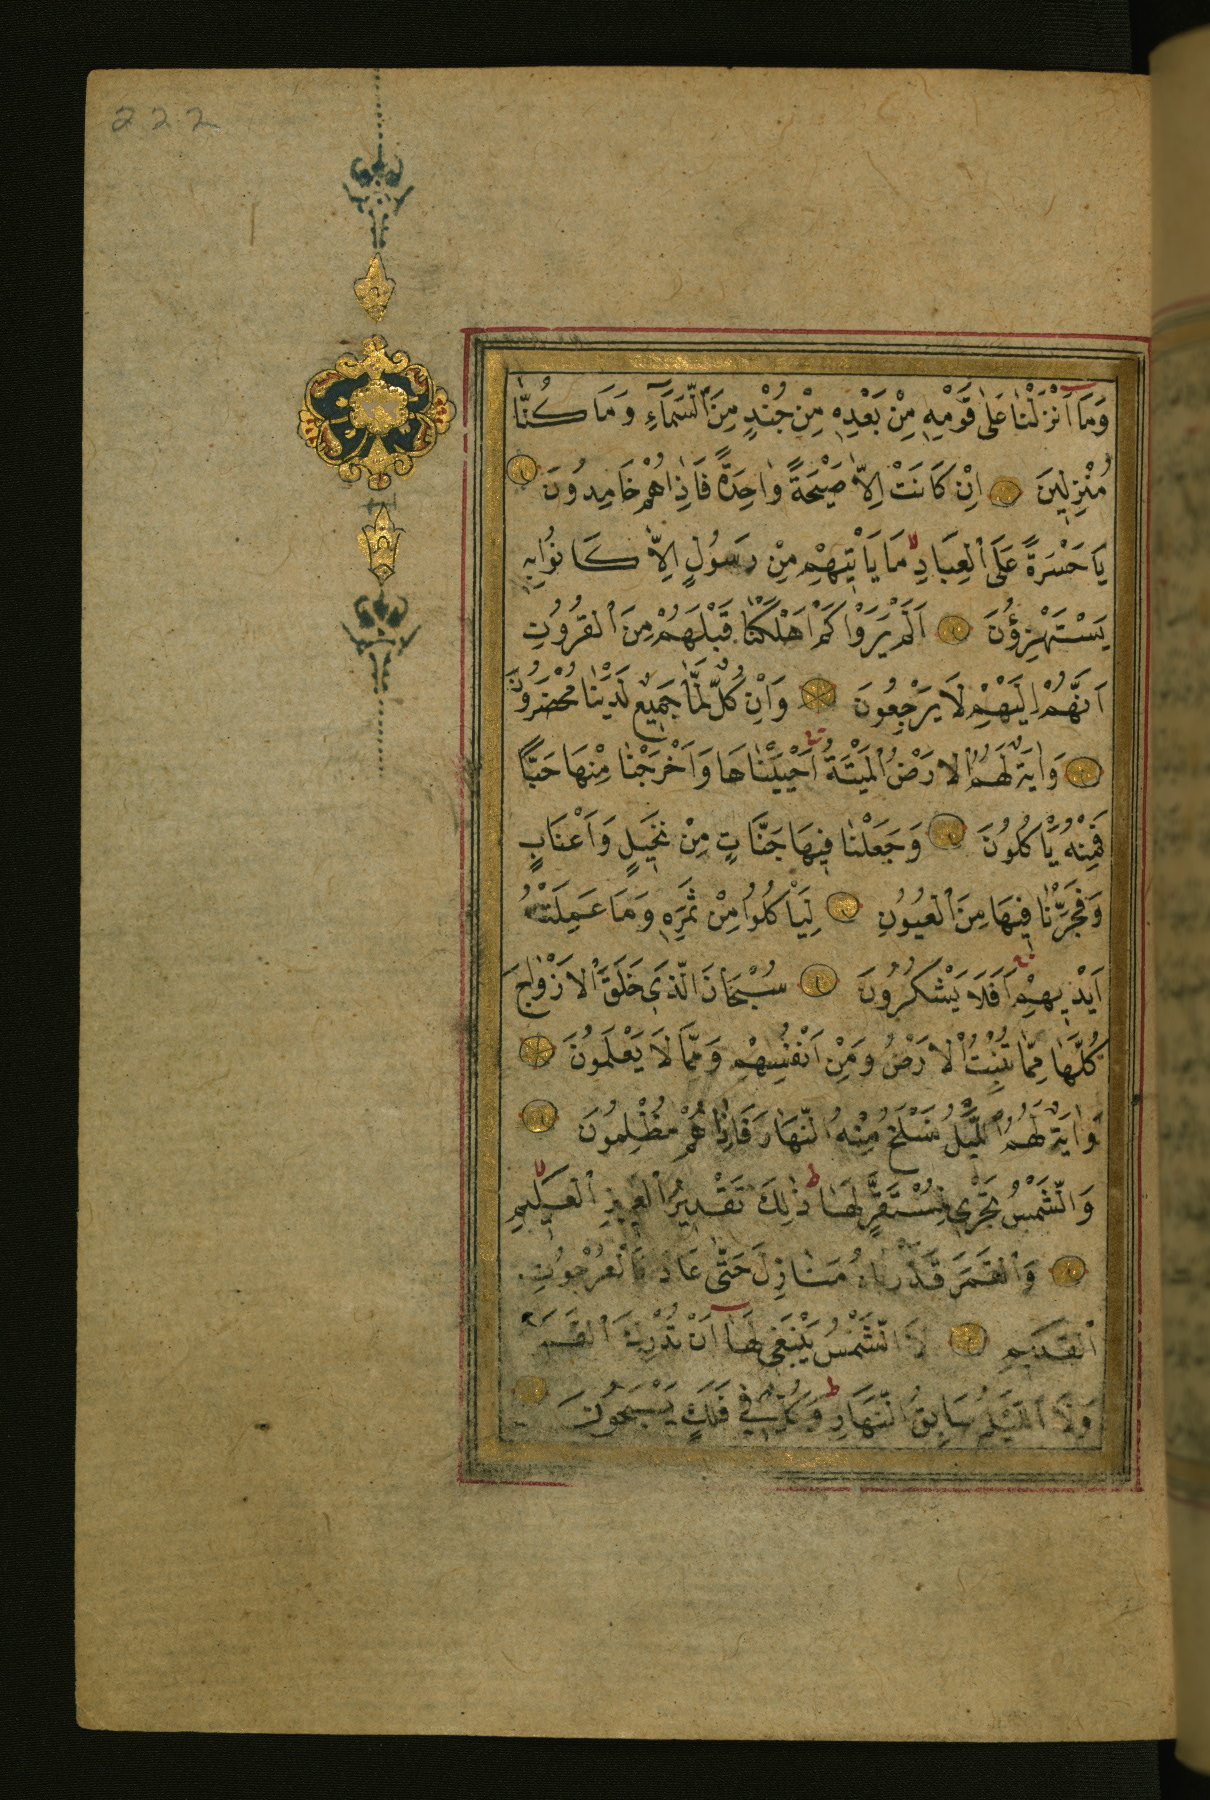 222
وَمَا اَنْزَلْنَا عَلٰى قَوْمِهٖ مِنْ بَعْدِهٖ مِنْ جُنْدٍ مِنَ السَّمَاۤءِ وَمَا كُنَّا
مُنْزِلِينَ اِنْ كَانَتْ اِلَّا صَيْحَةً وَاحِدَةً فَاِذَاهُمْ خَامِدُونَ
يَا حَسْرَةً عَلَى الْعِبَادِ مَا يَأْتِيهِمْ مِنْ رَسُولٍ اِلَّا كَانُوا بِهٖ
يَسْتَهْزِؤُنَ اَلَمْ يَرَوْا كَمْ اَهْلَكْنَا قَبْلَهُمْ مِنَ الْقُرُونِ
اَنَّهُمْ اِلَيْهِمْ لَا يَرْجِعُونَ وَاِنْ كُلٌّ لَمَّا جَمِيعٌ لَدَيْنَا مُحْضَرُونَ
وَاٰيَةٌ لَهُمُ الْاَرْضُ الْمَيْتَةُ اَحْيَيْنَاهَا وَاَخْرَجْنَا مِنْهَا حَبًّا
فَمِنْهُ يَأْكُلُونَ وَجَعَلْنَا فِيهَا جَنَّاتٍ مِنْ نَخِيلٍ وَاَعْنَابٍ
وَفَجَّرْنَا فِيهَا مِنَ الْعُيُونِ لِيَأْكُلُوا مِنْ ثَمَرِهٖ وَمَا عَمِلَتْهُ
اَيْدِيهِمْ اَفَلَا يَشْكُرُونَ سُبْحَانَ الَّذِي خَلَقَ الْاَزْوَاجَ
كُلَّهَا مِمَّا تُنْبِتُ الْاَرْضُ وَمِنْ اَنْفُسِهِمْ وَمِمَّا لَا يَعْلَمُونَ
وَاٰيَةٌ لَهُمُ الَّيْلُ نَسْلَخُ مِنْهُ النَّهَارَ فَاِذَا هُمْ مُظْلِمُونَ
وَالشَّمْسُ تَجْرِي لِمُسْتَقَرٍّ لَهَا ذٰلِكَ تَقْدِيرُ الْعَزِيزِ الْعَلِيمِ
وَالْقَمَرَ قَدَّرْنَاهُ مَنَازِلَ حَتّٰى عَادَ كَالْعُرْجُونِ
الْقَدِيمِ لَا الشَّمْسُ يَنْبَغِي لَهَا اَنْ تُدْرِكَ الْقَمَرَ
وَلَا الَّيْلُ سَابِقُ النَّهَارِ وَكُلٌّ فِي فَلَكٍ يَسْبَحُونَ